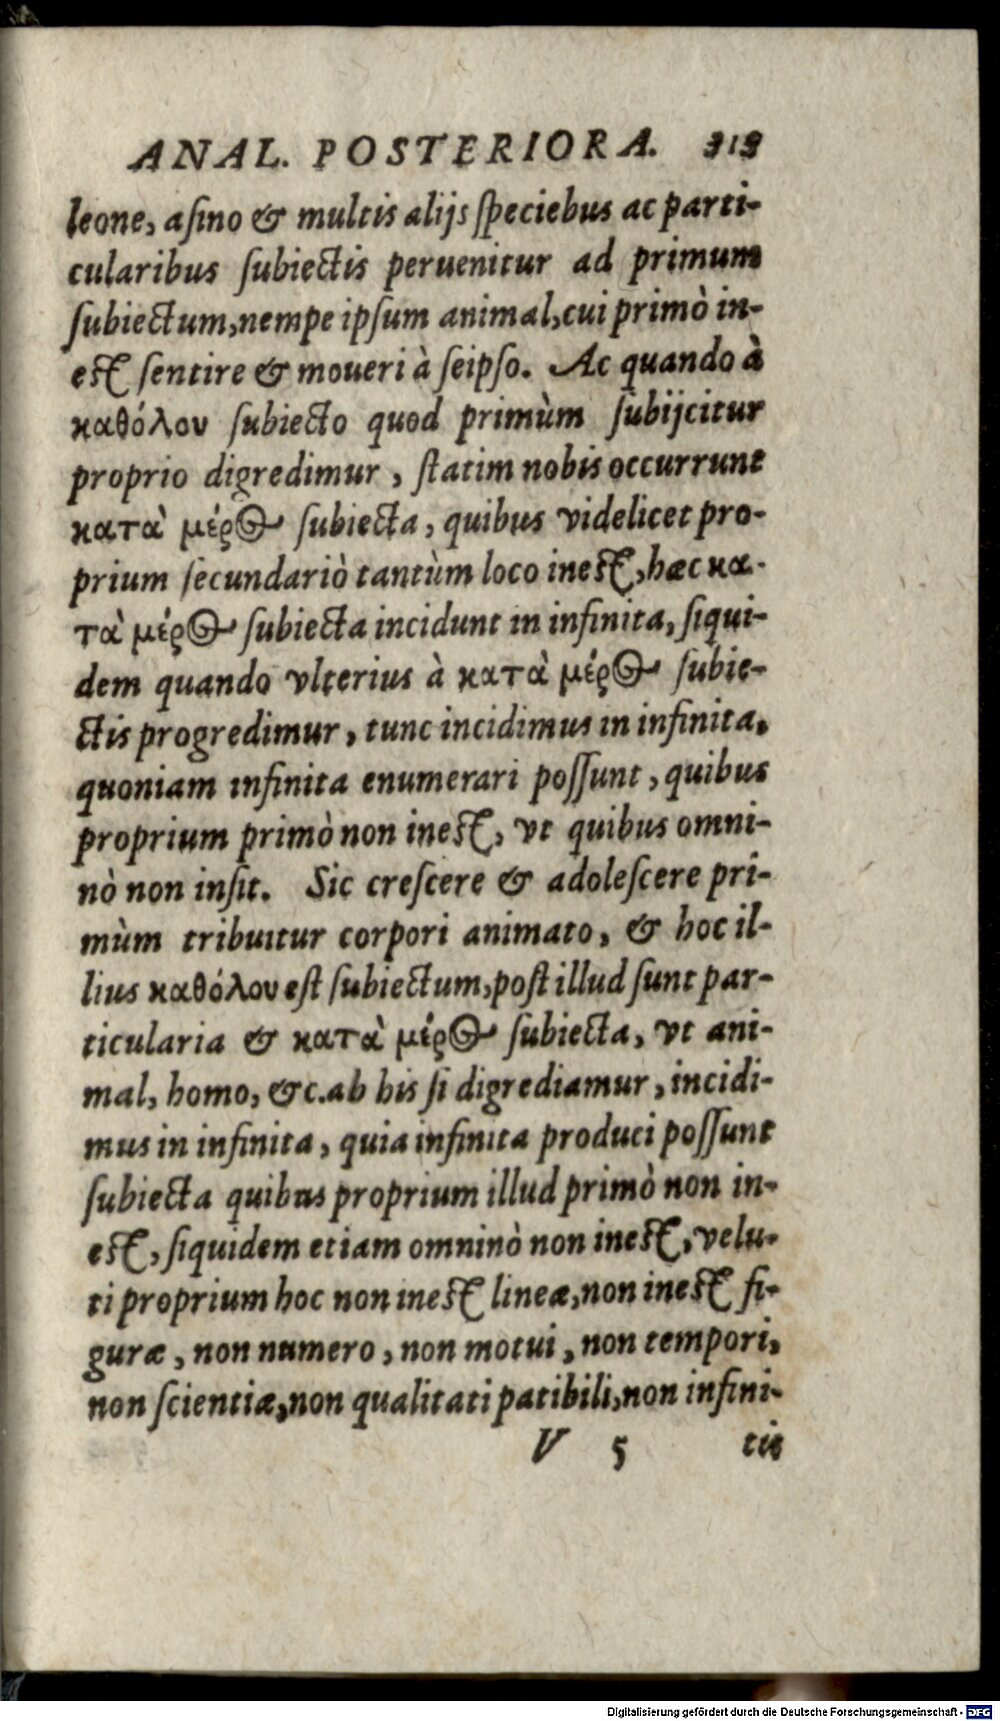 ANAL. POSTERIORA. 313
leone, asino & multis alijs speciebus ac parti-
cularibus subiectis peruenitur ad primum
subiectum, nempe ipsum animal, cui primò in-
est sentire & moueri à seipso. Ac quando à
καθόλου subiecto quod primùm subijcitur
proprio digredimur, statim nobis occurrunt
κατὰ μέρος subiecta, quibus videlicet pro-
prium secundariò tantùm loco inest, hæc κα-
τὰ μέρος subiecta incidunt in infinita, siqui-
dem quando vlterius à κατὰ μέρος subie-
ctis progredimur, tunc incidimus in infinita,
quoniam infinita enumerari possunt, quibus
proprium primò non inest, vt quibus omni-
nò non insit. Sic crescere & adolescere pri-
mùm tribuitur corpori animato, & hoc il-
lius καθόλου est subiectum, post illud sunt par-
ticularia & κατὰ μέρος subiecta, vt ani-
mal, homo, &c. ab his si digrediamur, incidi-
mus in infinita, quia infinita produci possunt
subiecta quibus proprium illud primò non in-
est, siquidem etiam omninò non inest, velu-
ti proprium hoc non inest lineæ, non inest fi-
guræ, non numero, non motui, non tempori,
non scientiæ, non qualitati patibili, non infini-
V 5 tis
Digitalisierung gefördert durch die Deutsche Forschungsgemeinschaft - DFG